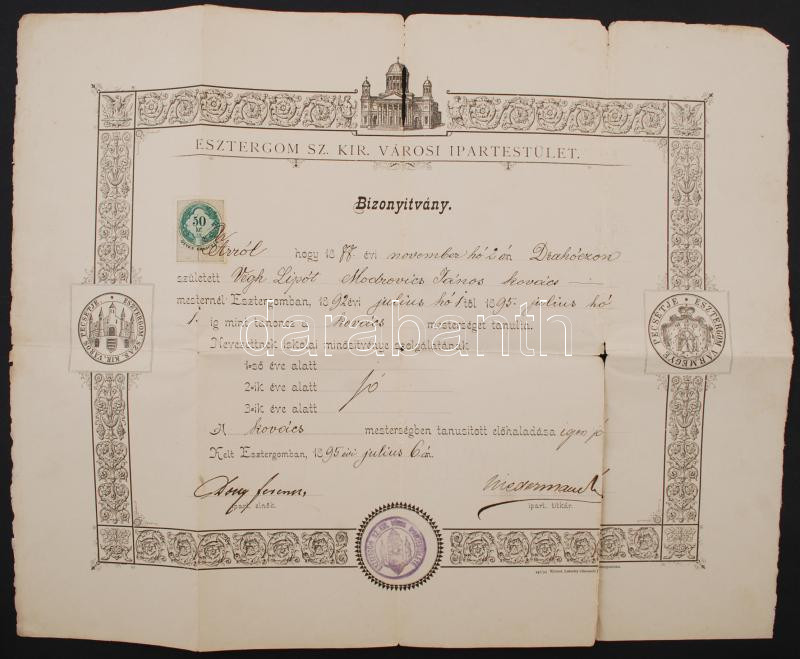 ESZTERGOM SZ. KIR. VÁROSI IPARTESTÜLET.
Bizonyitvány.
50
kr
Arról hogy 1877. évi november hó 2 án Drahóczon
született Végh Lipót Modrovics János kovács
mesternél Esztergomban, 1892 évi julius hó 1 től 1895. julius hó
1. ig mint tanoncz a kovács mesterséget tanulta.
Nevezettnek iskolai minősitvénye szolgálatának
1-ső éve alatt
2-ik éve alatt jó
3-ik éve alatt
A kovács mesterségben tanusitott előhaladása igen jó
Kelt Esztergomban, 1895 évi julius 6 án.
ipart. elnök.
ipart. titkár.
ESZTERGOM SZAB. KIR. VÁROS PECSÉTJE
ESZTERGOM VÁRMEGYE PECSÉTJE
darabanth